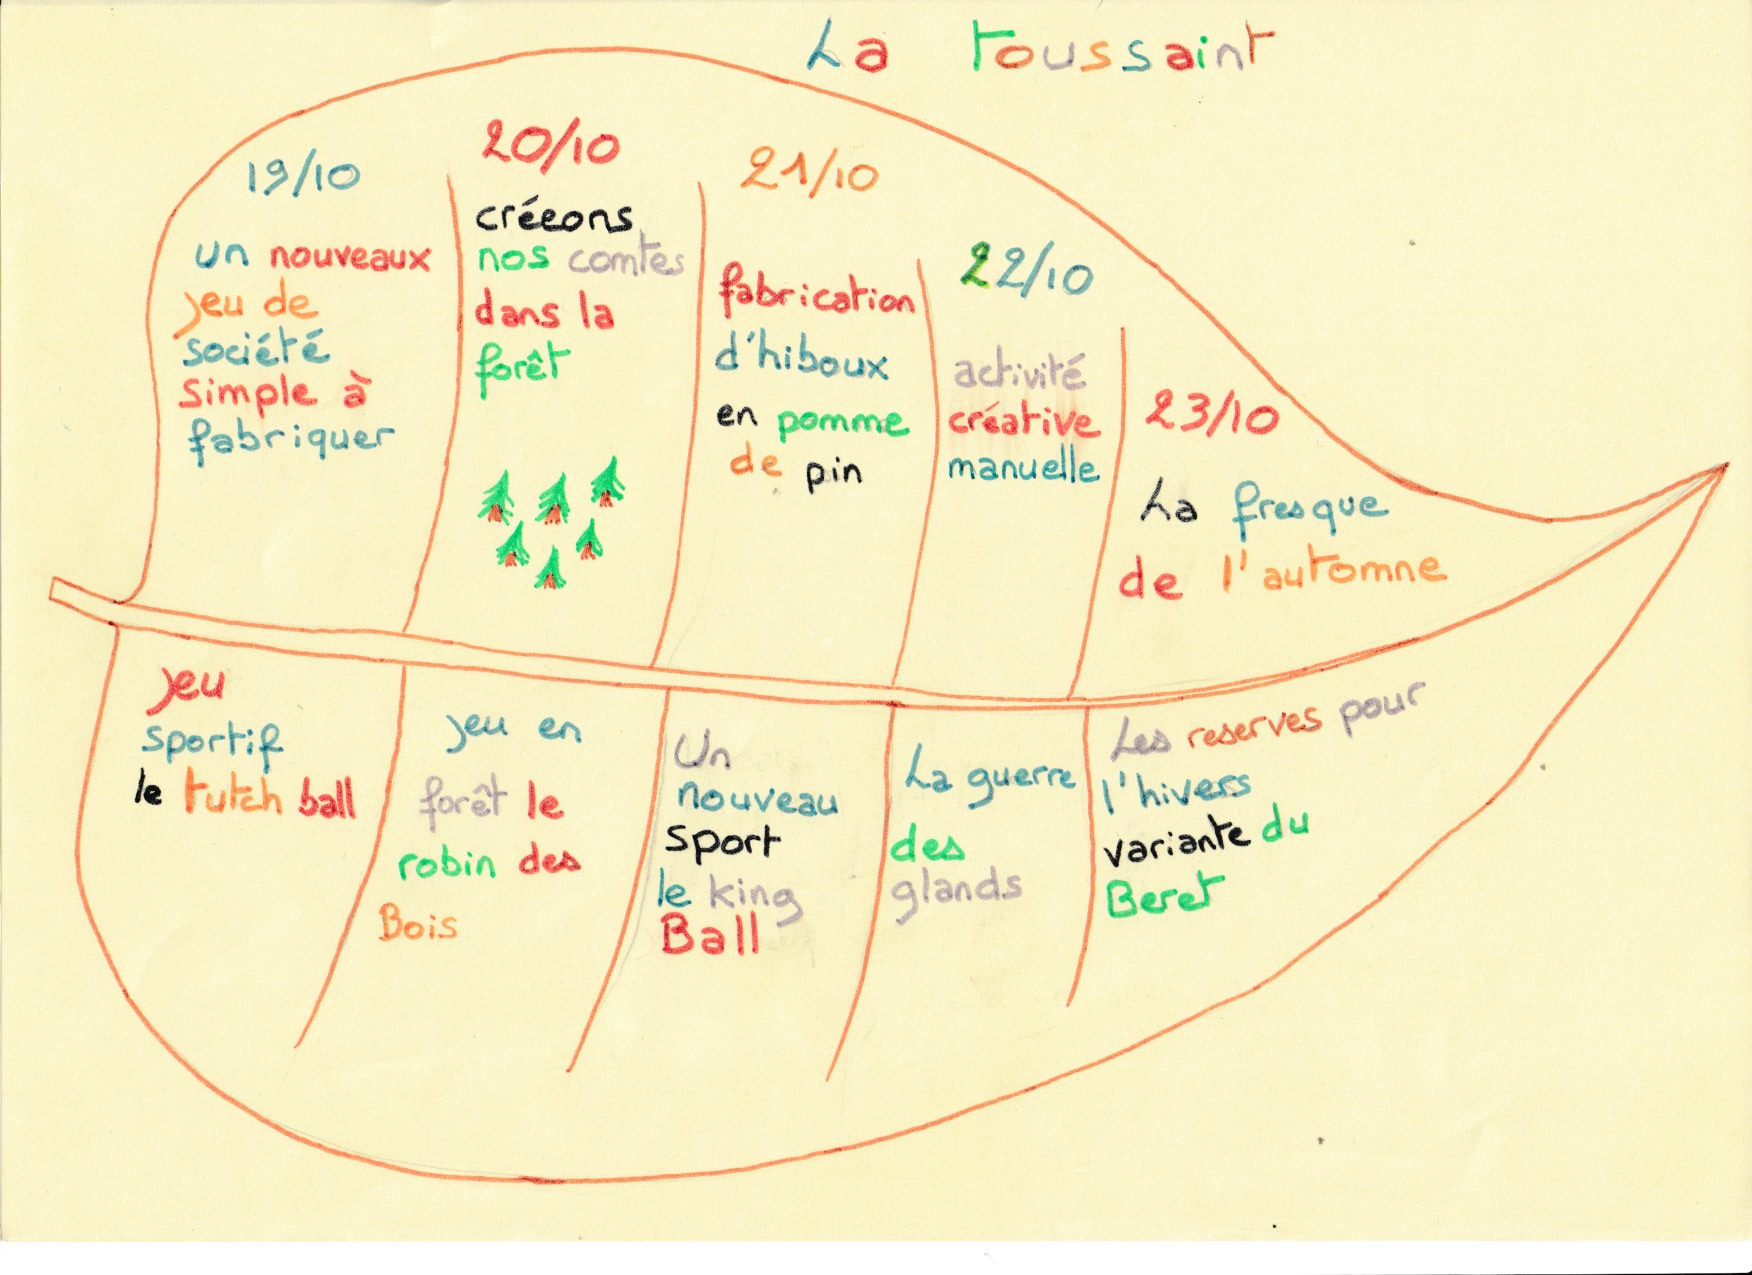 La toussaint
19/10
un nouveaux
jeu de
société
simple à
fabriquer
20/10
crééons
nos comtes
dans la
forêt
21/10
fabrication
d'hiboux
en pomme
de pin
22/10
activité
créative
manuelle
23/10
La fresque
de l'automne
jeu
sportif
le tutch ball
jeu en
forêt le
robin des
Bois
Un
nouveau
sport
le king
Ball
La guerre
des
glands
Les reserves pour
l'hivers
variante du
Beret